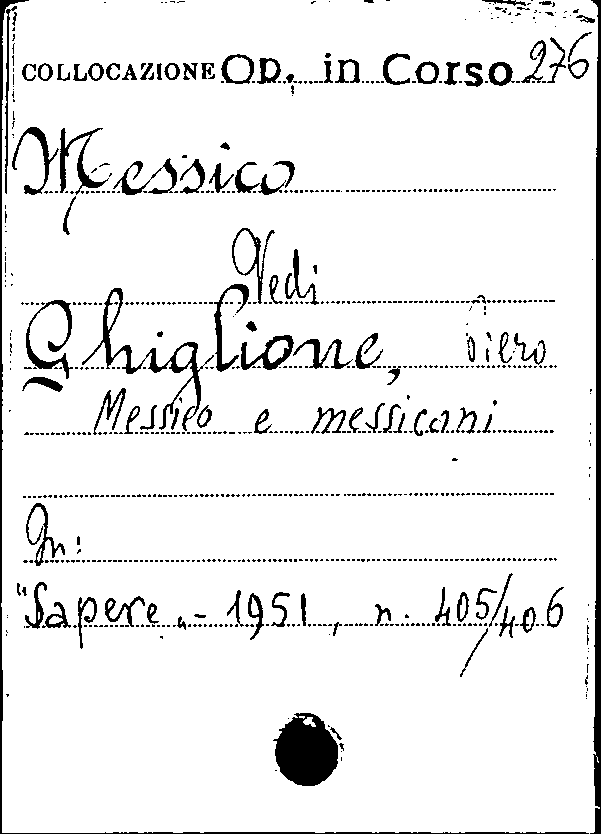 COLLOCAZIONE OP. in Corso 276
Messico
Vedi
Ghiglione, Piero
Messico e messicani
In:
"Sapere„ - 1951, n. 405/406